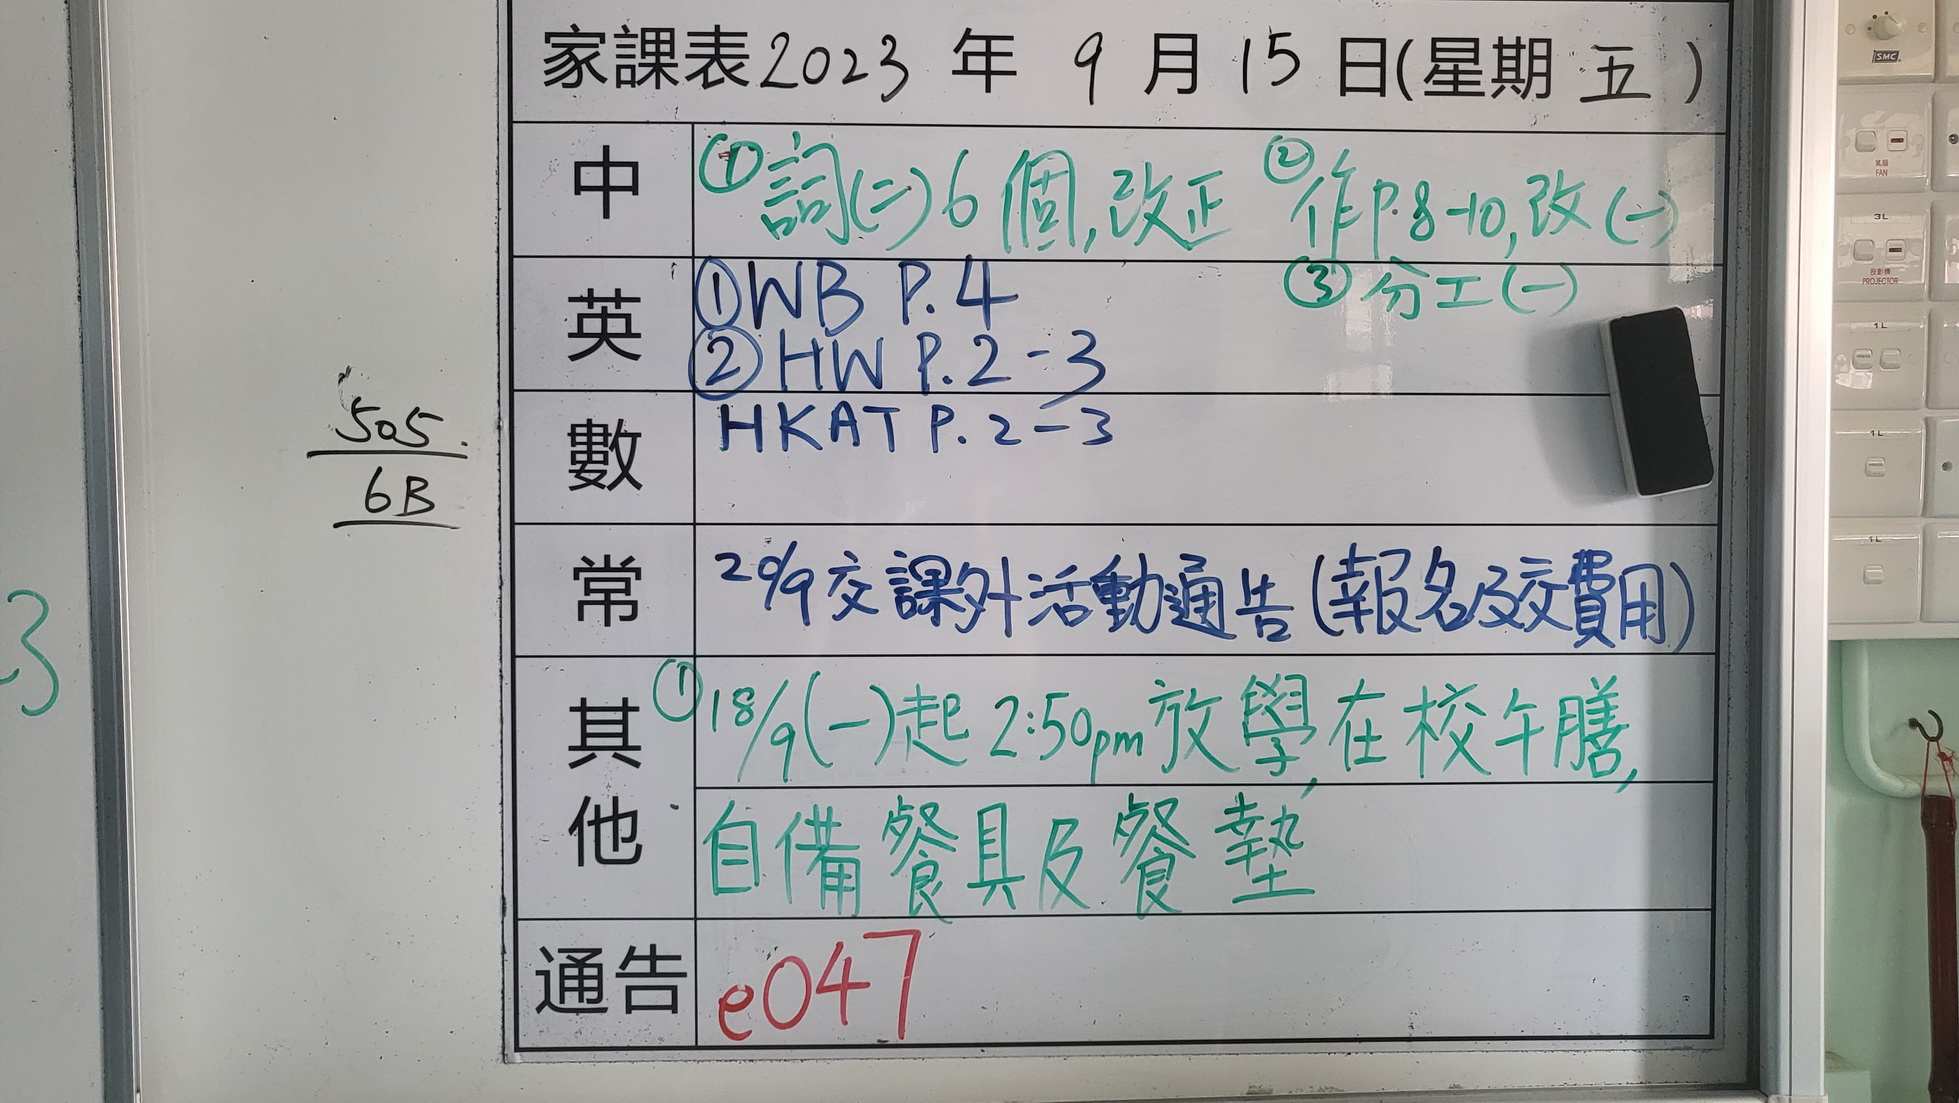 家課表 2023 年 9 月 15 日(星期 五 )
中 ①詞(二)6個,改正 ②作P.8-10,改(一)
③分工(一)
英 ①WB P.4
②HW P.2-3
數 HKAT P.2-3
常 20/9交課外活動通告(報名及交費用)
其他 ①18/9(一)起 2:50pm放學,在校午膳,
自備餐具及餐墊
通告 e047
505.
6B
3
SMC
風扇
FAN
3L
投影機
PROJECTOR
1L
1L
1L